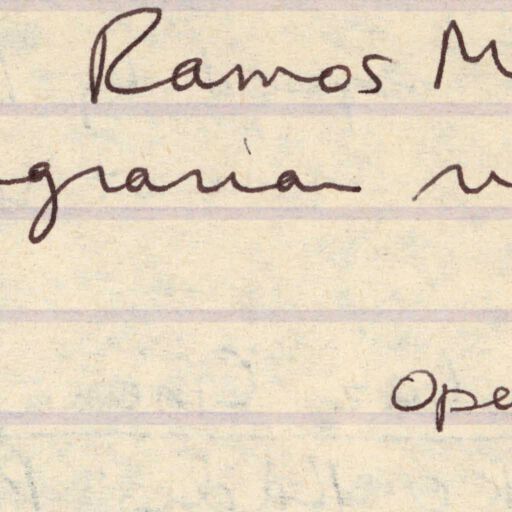 Ramos M
grarian
Ope